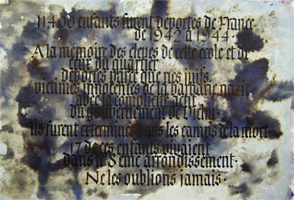 11400 enfants furent déportés de France
de 1942 à 1944
A la mémoire des élèves de cette école et de
ceux du quartier
déportés parce que nés juifs,
victimes innocentes de la barbarie nazie
avec la complicité active
du gouvernement de Vichy.
Ils furent exterminés dans les camps de la mort.
17 de ces enfants vivaient
dans le 8ème arrondissement.
Ne les oublions jamais.